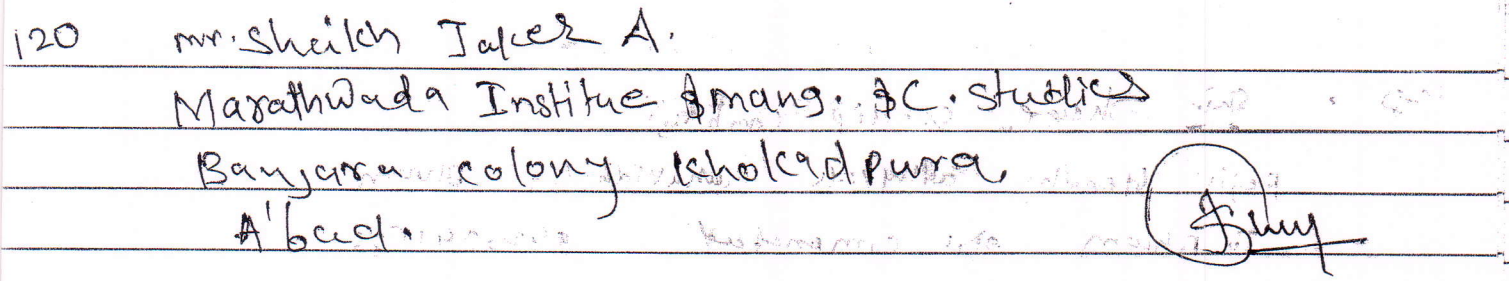 120 mr. Sheikh Jaker A.
Marathwada Institue & mang. & C. Studies
Banjara colony Khokadpura,
A'bad.